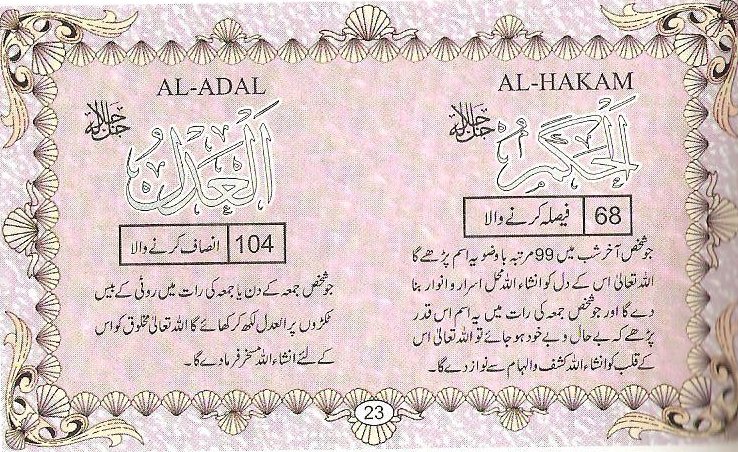 AL-HAKAM
اَلْحَكَمُ
جل جلالہ
68 فیصلہ کرنے والا
جو شخص آخر شب میں 99 مرتبہ باوضو یہ اسم پڑھے گا
اللہ تعالیٰ اس کے دل کو انشاء اللہ محل اسرار و انوار بنا
دے گا اور جو شخص جمعہ کی رات میں یہ اسم اس قدر
پڑھے کہ بے حال و بے خود ہو جائے تو اللہ تعالیٰ اس
کے قلب کو انشاء اللہ کشف والہام سے نواز دے گا۔
AL-ADAL
اَلْعَدْلُ
جل جلالہ
104 انصاف کرنے والا
جو شخص جمعہ کے دن یا جمعہ کی رات میں روٹی کے بیس
ٹکڑوں پر العدل لکھ کر کھائے گا اللہ تعالیٰ مخلوق کو اس
کے لئے انشاء اللہ مسخر فرما دے گا۔
23